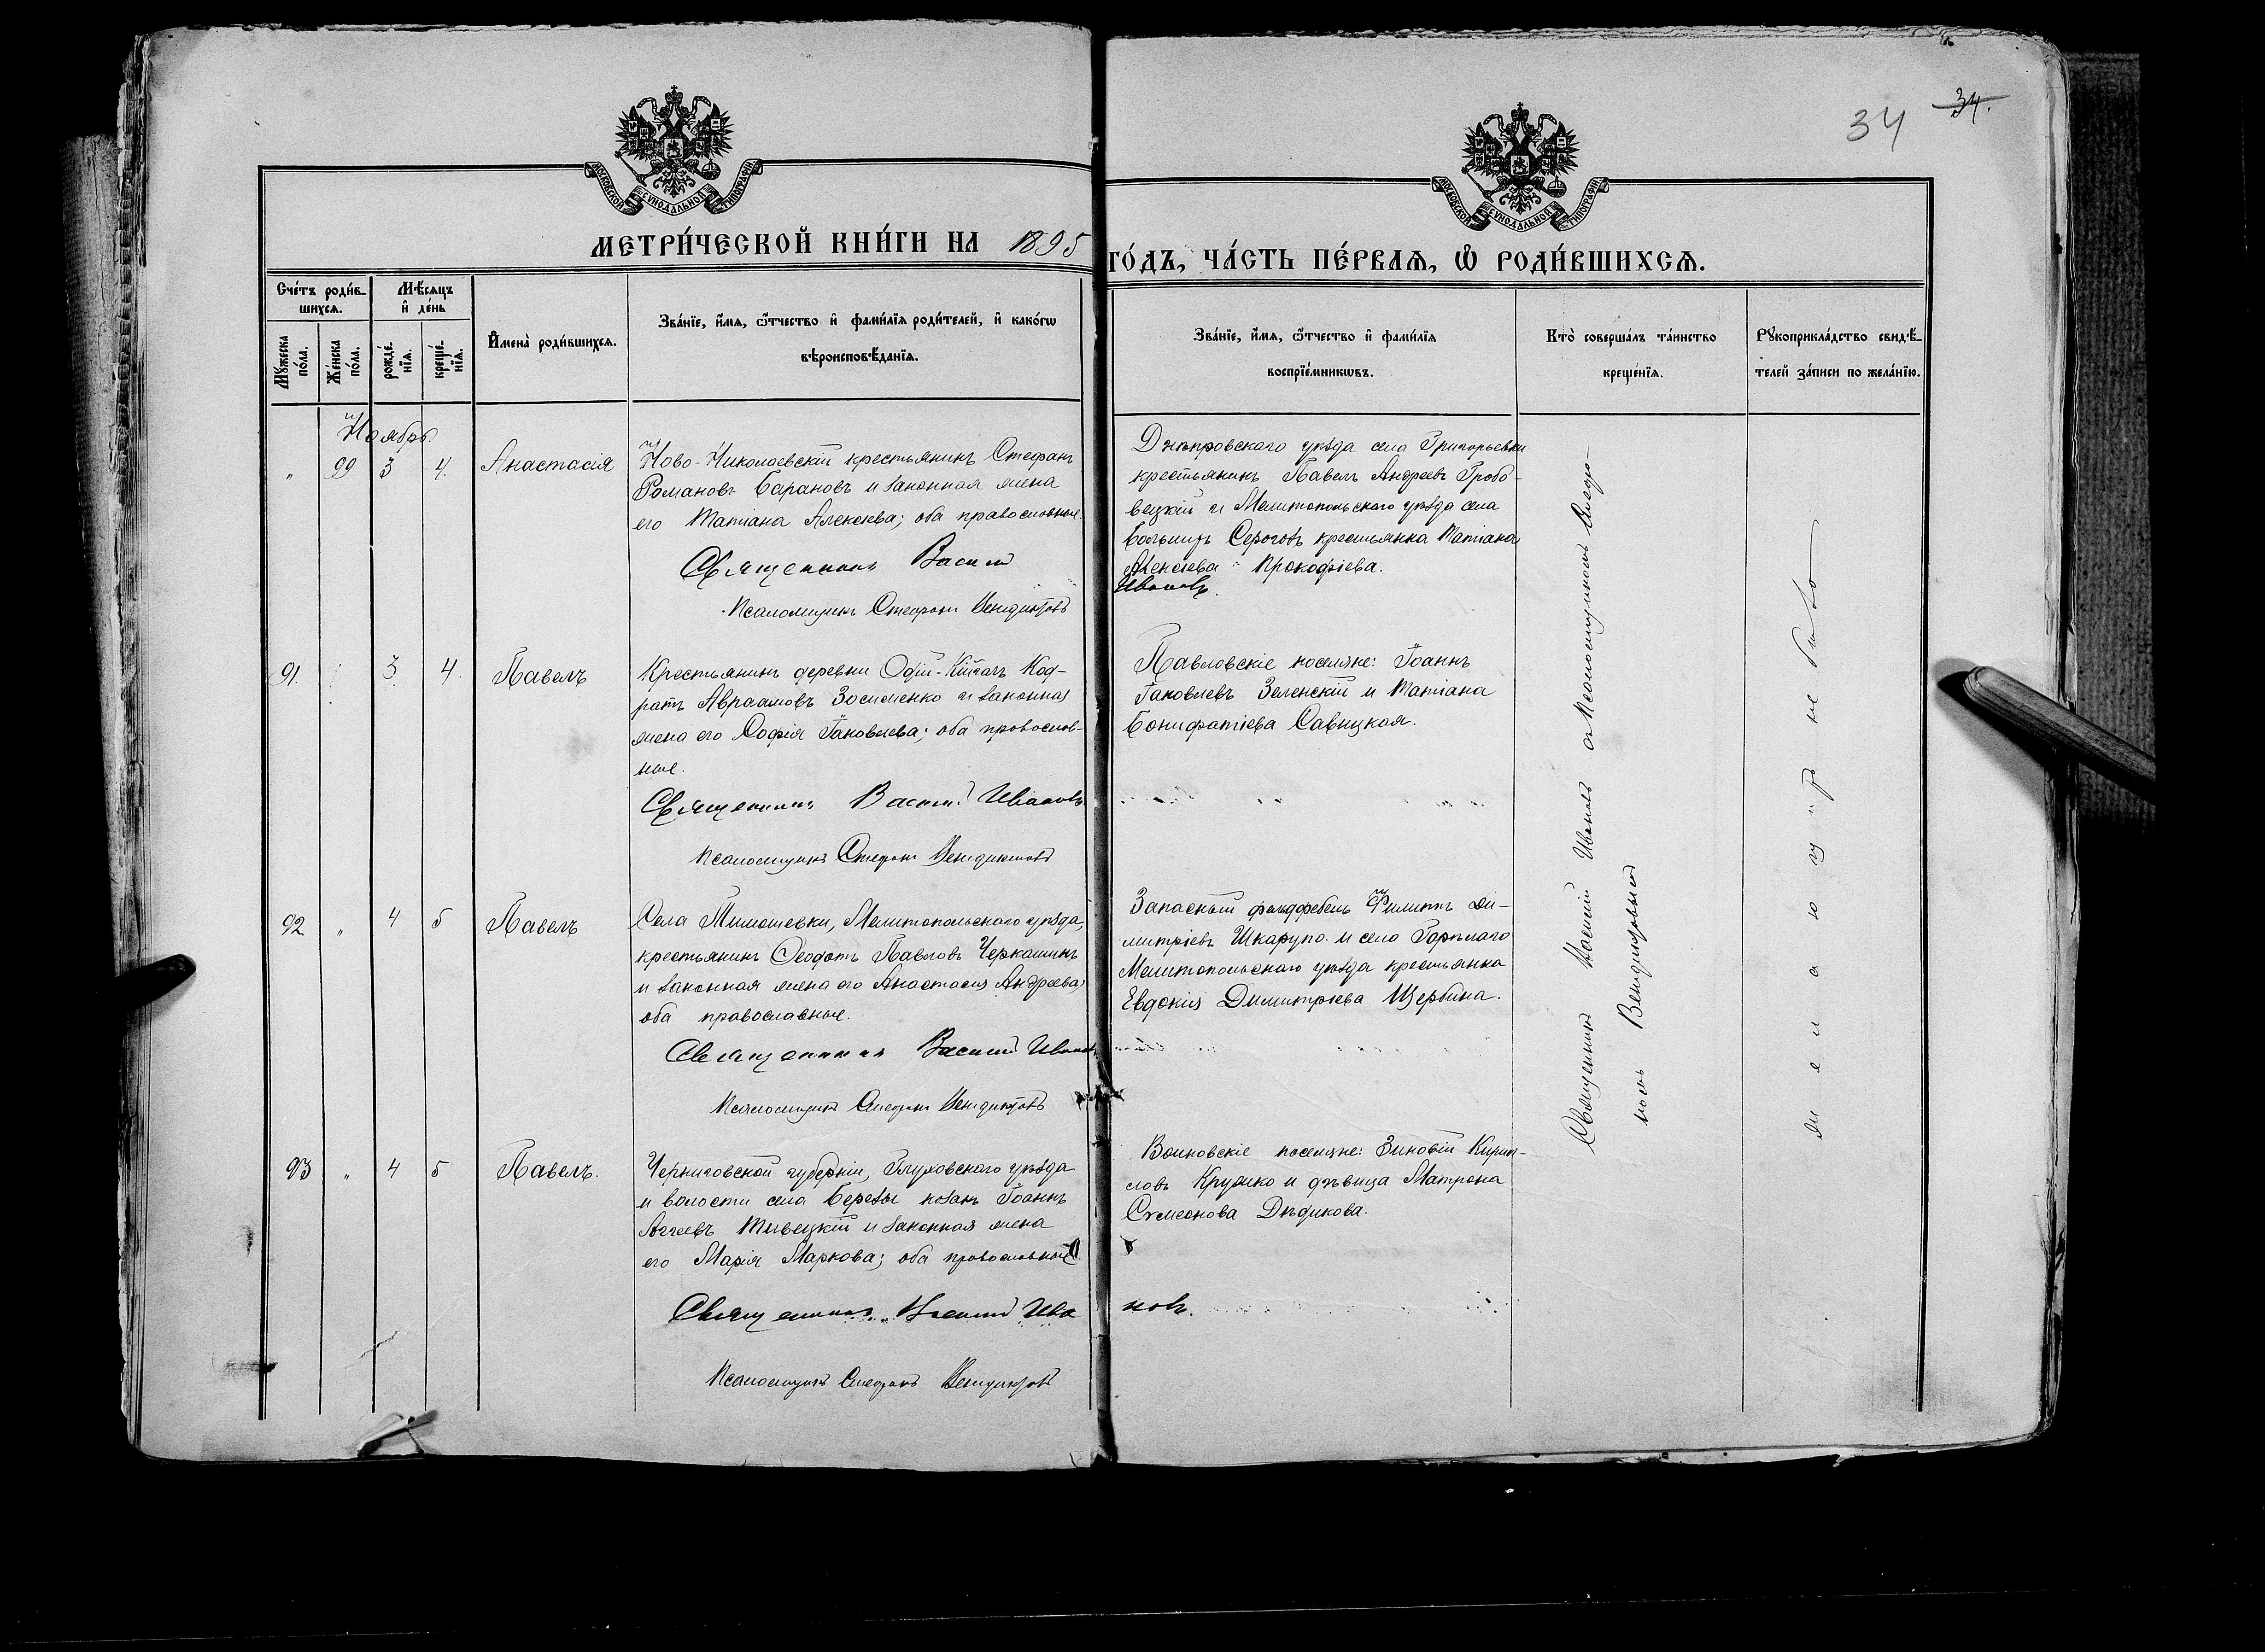 34 34.
МОСКОВСКОЙ СѴНОДАЛЬНОЙ ТИПОГРАФІИ
МОСКОВСКОЙ СѴНОДАЛЬНОЙ ТИПОГРАФІИ
МЕТРИ́ЧЕСКОЙ КНИ́ГИ НА 1895
ГО́ДЪ, ЧА́СТЬ ПЕ́РВАѦ, Ѡ РОДИ́ВШИХСѦ.
Сче́тъ роди́в-
шихсѧ.
Мꙋжеска по́ла.
Же́нска по́ла.
Мѣ́сѧцъ
и҆ де́нь
рожде́нїѧ.
креще́нїѧ.
И҆мена̀ роди́вшихсѧ.
Зва́нїе, и҆́мѧ, ѻ҆́тчество и҆ фами́лїѧ роди́телей, и҆ како́гѡ
вѣроисповѣ́данїѧ.
Зва́нїе, и҆́мѧ, ѻ҆́тчество и҆ фами́лїѧ
воспрїе́мникѡвъ.
Кто̀ соверша́лъ та́инство
креще́нїѧ.
Рꙋкоприкла́дство свидѣ́-
телей за́писи по жела́нїю.
Ноябрь.
" 99 3 4. Анастасія
Ново-Николаевскій крестьянинъ Стефанъ
Романовъ Барановъ и законная жена
его Татіана Алексѣева; оба православные.
Священникъ Василій
Псаломщикъ Стефанъ Вендиктовъ
Днѣпровскаго уѣзда села Григорьевки
крестьянинъ Павелъ Андреевъ Гробо-
вецкій и Мелитопольскаго уѣзда села
Большихъ Серогозъ крестьянка Татіана
Алексѣева Прокофіева.
Ивановъ.
91. 3 4. Павелъ
Крестьянинъ деревни Код-
ратъ Авраамовъ Зосименко и законная
жена его Софія Іаковлева; оба православ-
ные.
Священникъ Василій Ивановъ
Псаломщикъ Стефанъ Вендиктовъ
Павловскіе поселяне: Іоаннъ
Іаковлевъ Зеленскій и Татіана
Бонифатіева Савицкая.
92 " 4 5 Павелъ
Села Тимошевки, Мелитопольскаго уѣзда,
крестьянинъ Ѳеодотъ Павловъ Черкашинъ
и законная жена его Анастасія Андреева,
оба православные.
Священникъ Василій Ивановъ
Псаломщикъ Стефанъ Вендиктовъ
Запасный фельдфебель Филиппъ Ди-
митріевъ Шкарупо и села Горѣлаго
Мелитопольскаго уѣзда крестьянка
Евдокія Димитріева Щербина.
93 " 4 5 Павелъ.
Черниговской губерніи, Глуховскаго уѣзда
и волости села Березы козакъ Іоаннъ
Аггеевъ Тивецкій и законная жена
его Марія Маркова; оба православные.
Священникъ Василій Ива
новъ.
Псаломщикъ Стефанъ Вендиктовъ
Воиновскіе поселяне: Зиновій Кирил-
ловъ Крупко и дѣвица Матрона
Сѵмеонова Дѣдикова.
Священникъ Василій Ивановъ съ Псаломщикомъ Стефа-
номъ Вендиктовымъ
желающихъ не было